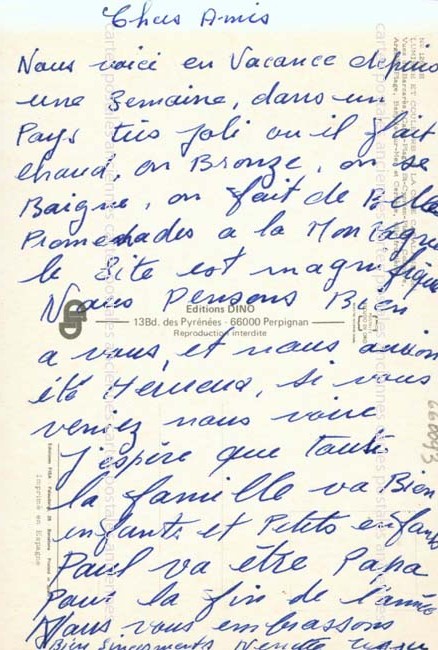 Chers Amis
Nous voici en Vacance depuis
une Semaine, dans un
Pays très joli ou il fait
chaud, on Bronze, on se
Baigne, on fait de Belle
Promenades a la Montagne
le Site est magnifique
Nous Pensons Bien
Editions DINO
13Bd. des Pyrénées - 66000 Perpignan
Reproduction interdite
a vous, et nous aurions
été Heureux, si vous
veniez nous voire
J'espère que toute
la famille va Bien
enfants et Petits enfants
Paul va être Papa
Pour la fin de l'année
Nous vous embrassons
Bien Sincèrements Nenette
Imprimé en Espagne
660093
cartes postales anciennes